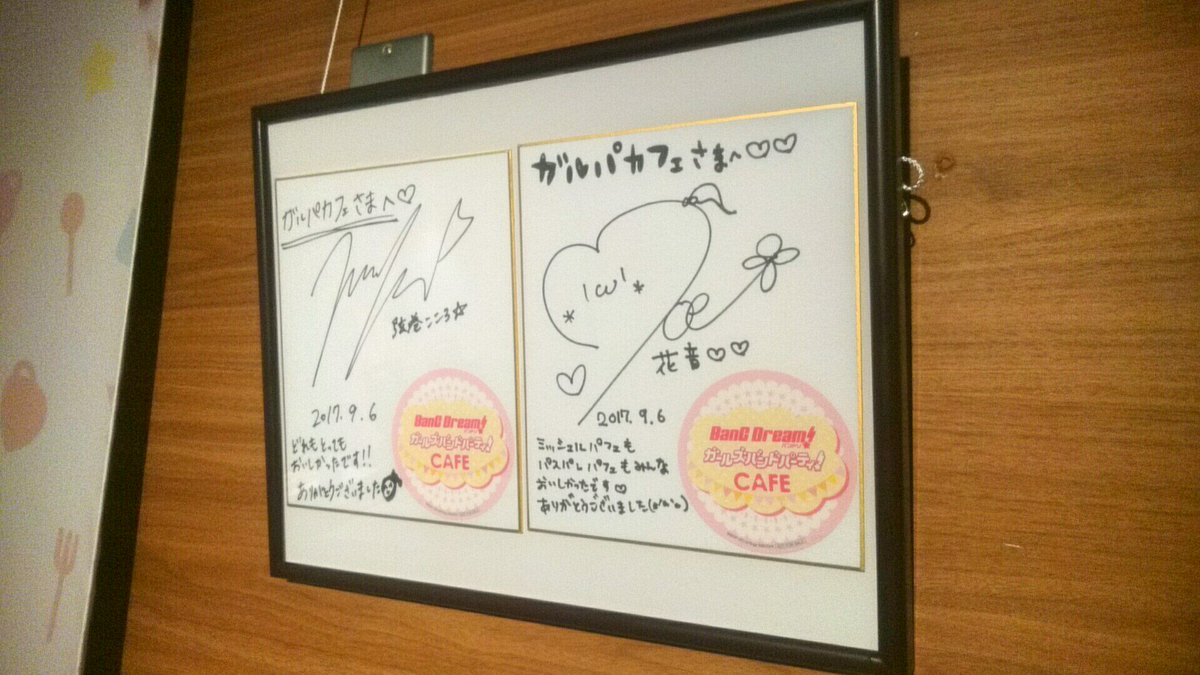 ガルパカフェさまへ♡
弦巻こころ☆
2017.9.6
どれもとっても
おいしかったです!!
ありがとうございました♪
BanG Dream!
ガールズバンドパーティ!
CAFE
ガルパカフェさまへ♡♡
'ω'
花音♡♡
2017.9.6
ミッシェルパフェも
パスパレパフェもみんな
おいしかったです♡
ありがとうございました
BanG Dream!
バンドリ!
ガールズバンドパーティ!
CAFE